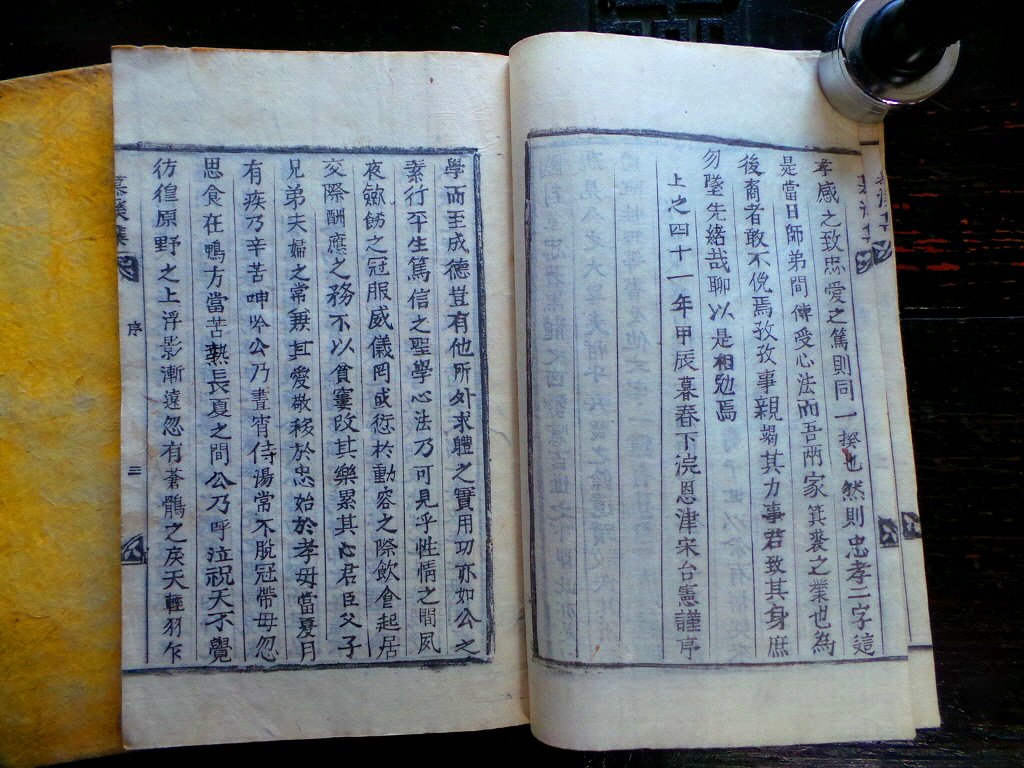 孝感之致忠愛之篤則同一揆也然則忠孝二字這
是當日師弟間傳受心法而吾兩家箕裘之業也為
後裔者敢不俛焉孜孜事親竭其力事君致其身庶
勿墜先緒哉聊以是相勉焉
上之四十一年甲辰暮春下浣恩津宋台憲謹序
學而至成德豈有他所外求軆之實用功亦如公之
素行平生篤信之聖學心法乃可見乎性情之間夙
夜斂飭之冠服威儀罔或愆於動容之際飲食起居
交際酬應之務不以貧窶改其樂累其心君臣父子
兄弟夫婦之常無其愛敬移於忠始於孝母當夏月
有疾乃辛苦呻吟公乃晝宵侍湯常不脫冠帶母忽
思食在鴨方當苦熱長夏之間公乃呼泣祝天不覺
彷徨原野之上浮影漸遠忽有蒼鶻之戾天輕羽乍
序
三